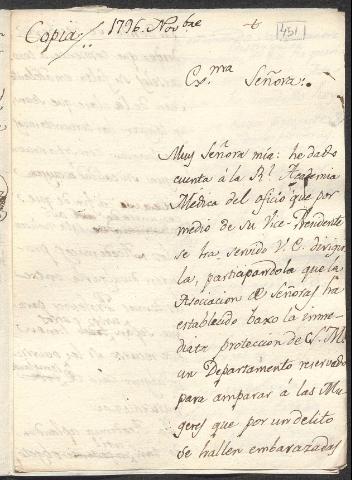 Copia.
1796. Nov.bre
451
Ex.ma Señora.
Muy Señora mia: he dado
cuenta á la R.l Academia
Médica del oficio que por
medio de su Vice-Presidente
se ha servido V. E. dirigir
la, participandola que la
Asociacion de Señoras ha
establecido baxo la inme-
diata proteccion de S. M.
un Departamento reservado
para amparar á las Mu-
geres que por un delito
se hallen embarazadas